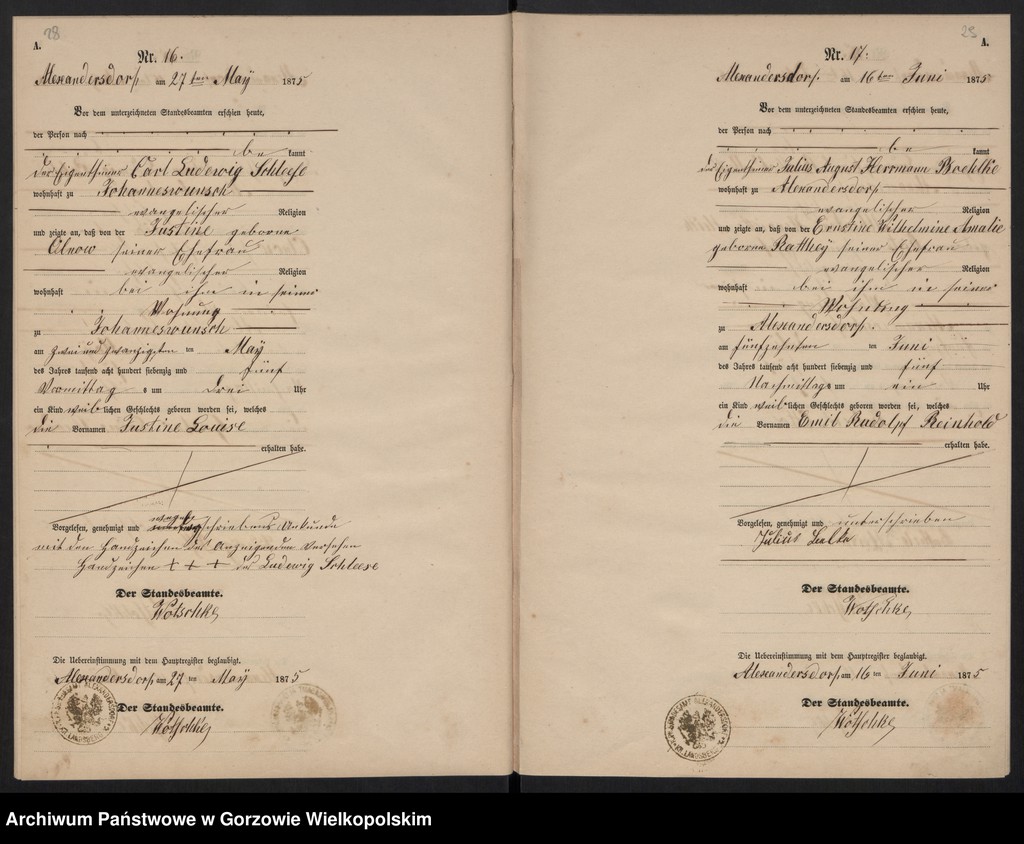 28
A.
Nr. 16.
Alexandersdorf am 27ten May 1875
Vor dem unterzeichneten Standesbeamten erschien heute,
der Person nach
be kannt
der Eigenthümer Carl Ludewig Schleese
wohnhaft zu Johanneswunsch
evangelischer Religion
und zeigte an, daß von der Justine geborne
seiner Ehefrau
evangelischer Religion
wohnhaft bei ihm in seiner
Wohnung
zu Johanneswunsch
am zwei und zwanzigsten ten May
des Jahres tausend acht hundert siebenzig und fünf
Vormittag s um drei Uhr
ein Kind weib lichen Geschlechts geboren worden sei, welches
die Vornamen Justine Louise
erhalten habe.
Vorgelesen, genehmigt und
mit den Handzeichen des Anzeigenden versehen
Handzeichen + + + des Ludewig Schleese
Der Standesbeamte.
Wotschke
Die Uebereinstimmung mit dem Hauptregister beglaubigt.
Alexandersdorf am 27 ten May 1875
Der Standesbeamte.
Wotschke
A.
Nr. 17.
Alexandersdorf. am 16ten Juni 1875
Vor dem unterzeichneten Standesbeamten erschien heute,
der Person nach
be kannt
der Eigenthümer Julius August Herrmann
wohnhaft zu Alexandersdorf
evangelischer Religion
und zeigte an, daß von der Ernstine Wilhelmine Amalie
geborne Rathey seiner Ehefrau
evangelischer Religion
wohnhaft bei ihm in seiner
Wohnung
zu Alexandersdorf.
am fünfzehnten ten Juni
des Jahres tausend acht hundert siebenzig und fünf
Nachmittags um ein Uhr
ein Kind weib lichen Geschlechts geboren worden sei, welches
die Vornamen Emil Rudolpf Reinhold
erhalten habe.
Vorgelesen, genehmigt und unterschrieben
Julius
Der Standesbeamte.
Wotschke
Die Uebereinstimmung mit dem Hauptregister beglaubigt.
Alexandersdorf. am 16 ten Juni 1875
Der Standesbeamte.
Wotschke
Archiwum Państwowe w Gorzowie Wielkopolskim